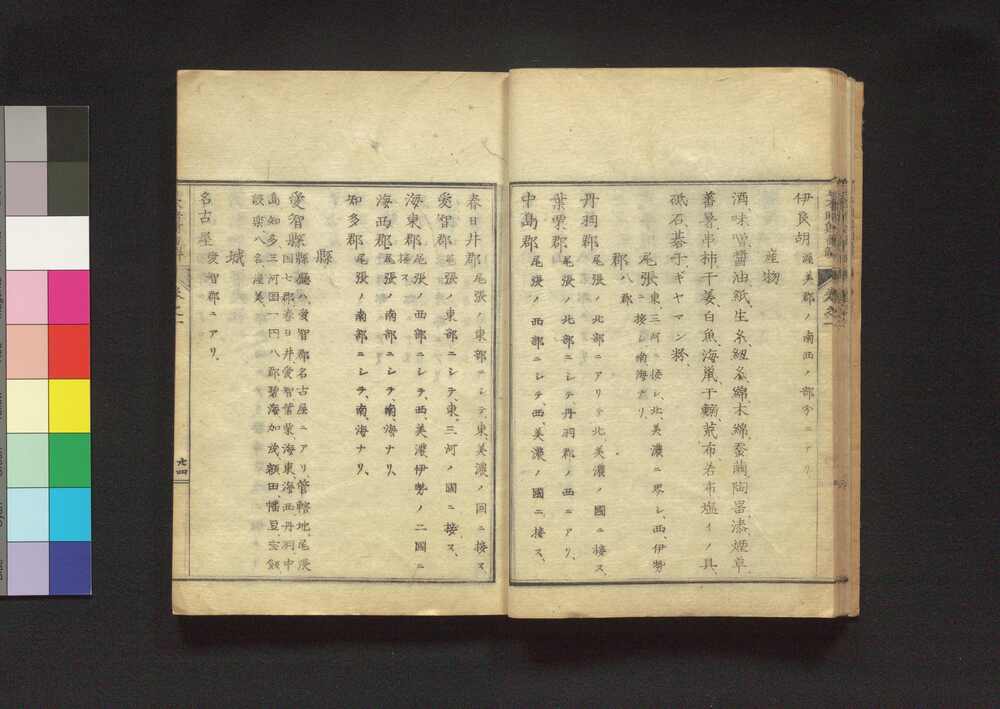 伊良胡 渥美郡ノ南西ノ部分ニアリ
産物
酒、味噌、醤油、紙、生糸、紐、糸、綿、木綿、蚕、繭、陶器、漆、煙草、
蕃暑、串柿、干姜、白魚、海鼠、干鰯、荒布、若布、塩、イノ具、
砥石、碁子、ギヤマン、粉、
尾張 東、三河ニ接シ、北、美濃ニ界シ、西、伊勢
ニ接シ、南海ナリ、
郡 八郡
丹羽郡 尾張ノ北部ニアリテ北、美濃ノ國ニ接ス、
葉栗郡 尾張ノ北部ニシテ、丹羽郡ノ西ニアリ、
中島郡 尾張ノ西部ニシテ西、美濃ノ國ニ接ス、
春日井郡 尾張ノ東部ニシテ、東、美濃ノ国ニ接ス、
愛智郡 尾張ノ東部ニシテ、東、三河ノ國ニ接ス、
海東郡 尾張ノ西部ニシテ、西、美濃伊勢ノ二國ニ
接ス
海西郡 尾張ノ南部ニシテ、南、海ナリ、
知多郡 尾張ノ南部ニシテ、南、海ナリ、
縣
愛智縣 縣廳ハ、愛智郡名古屋ニアリ管轄地、尾張
国七郡春日井、愛智、葉栗、海東、海西、丹羽、中
島、知多、三河国一円八郡碧海、加茂、額田、幡豆、宝飯
設楽、八名、渥美、
城
名古屋 愛智郡ニアリ、
九四